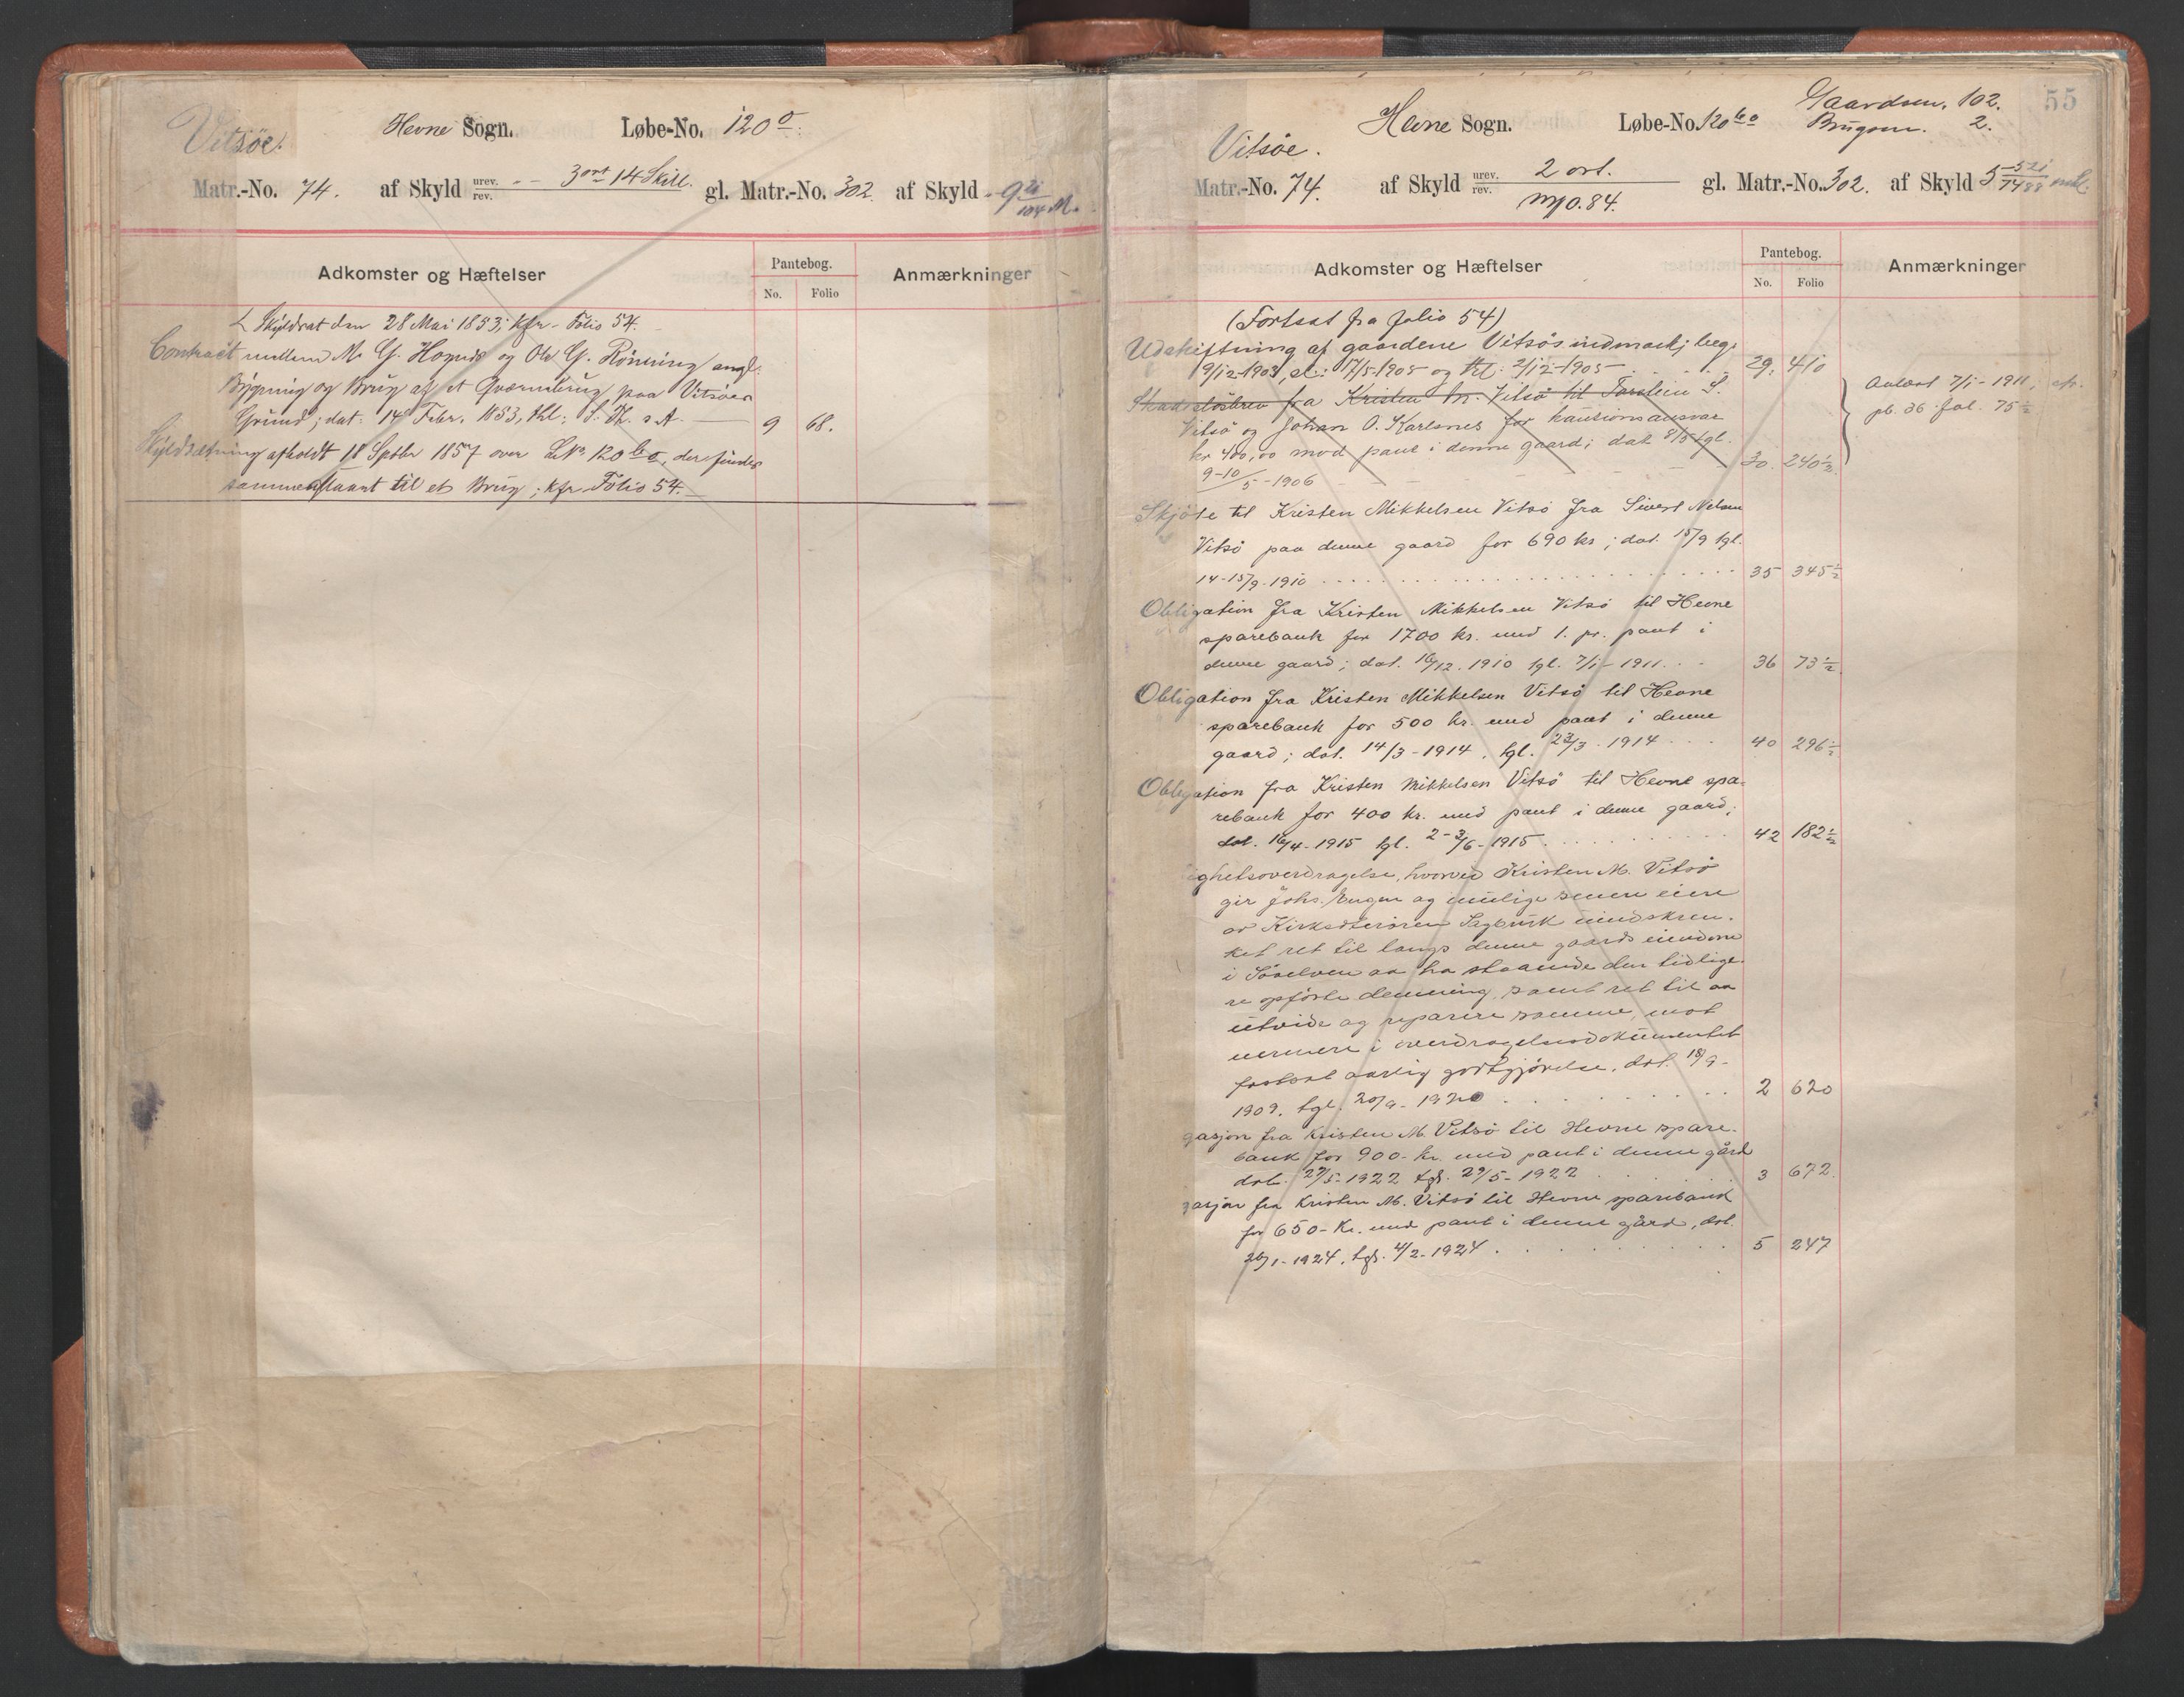 Vitsøe.
Hevne Sogn.
Løbe-No. 120 a.
Matr.-No. 74. af Skyld urev. rev. 3 ort 14 Skill. gl. Matr.-No. 302. af Skyld
Adkomster og Hæftelser
Pantebog.
No. Folio
Anmærkninger
Skyldsat den 28 Mai 1853; kfr. Folio 54.
Contract mellem M. G. og Ole G. Rönning angl.
Bygning og Brug af et Qværnebrug paa Vitsöes
Grund; dat: 14 Febr. 1853, thl: S. Th. s. A. 9 68.
Skyldsætning afholdt 18 Septbr 1857 over LNr 120 b a, der findes
sammenstaaet til et Brug; kfr Folio 54.
55
Vitsøe.
Hevne Sogn.
Løbe-No. 120 b a
Gaardsnr. 102.
Brugsnr. 2.
Matr.-No. 74. af Skyld urev. rev. 2 ort.
gl. Matr.-No. 302. af Skyld 5
0.84.
Adkomster og Hæftelser
Pantebog.
No. Folio
Anmærkninger
(Fortsat fra folio 54)
Udskiftning af gaardene Vitsös indmark; beg.
9/12-1903, sl: 17/5-1905 og thl: 2/12-1905 29. 410
Skadeslösbrev fra Kristen M. Vitsö til Torstein S.
Vitsö og Johan O. Karlsnes for kautionsansvar
kr 400,00 mod pant i denne gaard; dat 8/5 tgl.
9-10/5-1906 30. 240½
Avlæst 7/1-1911, cfr.
pb. 36 fol. 75½
Skjöte til Kristen Mikkelsen Vitsö fra Sivert Nilsen
Vitsö paa denne gaard for 690 kr; dat. 15/9 tgl.
14-15/9.1910 35 345½
Obligation fra Kristen Mikkelsen Vitsö til Hevne
sparebank for 1700 kr. med 1. pr. pant i
denne gaard; dat. 16/12.1910 tgl. 7/1-1911. 36 73½
Obligation fra Kristen Mikkelsen Vitsö til Hevne
sparebank for 500 kr. med pant i denne
gaard; dat. 14/3-1914. tgl. 23/3.1914 40 296½
Obligation fra Kristen Mikkelsen Vitsö til Hevne spa-
rebank for 400 kr. med pant i denne gaard;
dat. 16/4-1915 tgl. 2-3/6-1915 42 182½
ghetsoverdragelse, hvorved Kristen M. Vitsö
gir Johs. Engen og mulige senere eiere
av Sagbruk uindskræn-
ket ret til langs denne gaards eiendom
i Söaelven aa ha staaende den tidlige-
re opförte demning, samt ret til aa
utvide og reparere samme, mot
nermere i overdragelsesdokumentet
fastsat aarlig godtgjörelse, dat. 18/9-
1909. tgl. 20/9-1920 2 620
gasjon fra Kristen M. Vitsö til Hevne spare-
bank for 900- kr. med pant i denne gård
dat. 27/5-1922 tgl. 29/5-1922 3 672.
gasjon fra Kristen M. Vitsö til Hevne sparebank
for 650- Kr. med pant i denne gård, dat.
26/1-1924, tgl. 4/2-1924. 5 247